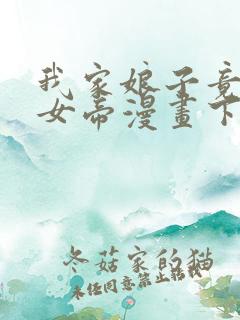 我家娘子竟
女帝漫畫下
冬菇家的猫
未经同意禁止转载